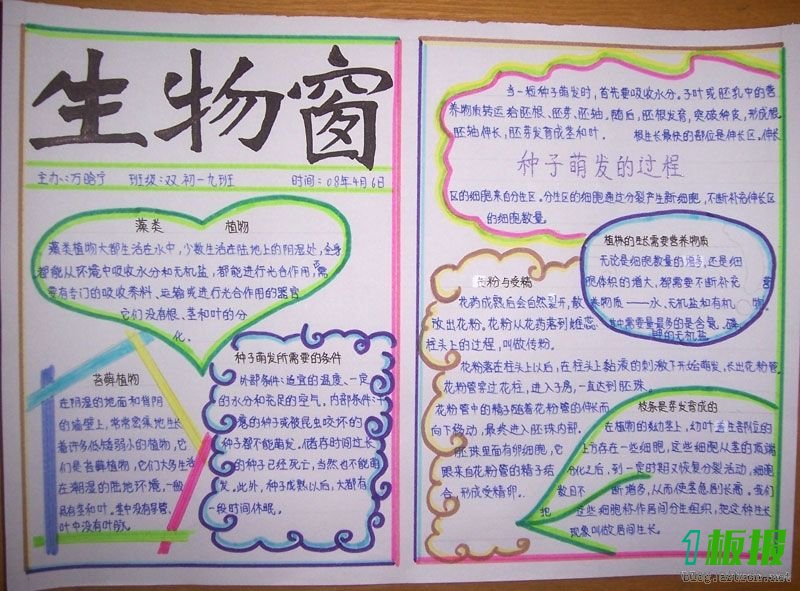 生物窗
主办:万晗宁 班级:双.初一九班 时间:08年4月6日
藻类 植物
藻类植物大都生活在水中,少数生活在陆地上的阴湿处,全身
都能从环境中吸收水分和无机盐,都能进行光合作用,
有专门的吸收养料、运输或进行光合作用的器官
它们没有根、茎和叶的分
化.
苔藓植物
在阴湿的地面和背阴
的墙壁上,常常密集地生长
着许多低矮弱小的植物,它
们是苔藓植物,它们大多生活
在潮湿的陆地环境,一般
具有茎和叶。茎中没有导管,
叶中没有叶脉.
种子萌发所需要的条件
外部条件:适宜的温度、一定
的水分和充足的空气。内部条件:干
瘪的种子或被昆虫咬坏的
种子都不能萌发。储存时间过长
的种子已经死亡,当然也不能萌
发。此外,种子成熟以后,大都有
一段时间休眠。
当一粒种子萌发时,首先要吸收水分。子叶或胚乳中的营
养物质转运给胚根、胚芽、胚轴,随后,胚根发育,突破种皮,形成根.
胚轴伸长,胚芽发育成茎和叶. 根生长最快的部位是伸长区.伸长
种子萌发的过程
区的细胞来自分生区。分生区的细胞通过分裂产生新细胞,不断补充伸长区
的细胞数量.
植株的生长需要营养物质
无论是细胞数量的增多,还是细
胞体积的增大,都需要不断补充营
养物质——水、无机盐和有机物.
其中需要量最多的是含氮、磷、
钾的无机盐
花粉与受精
花药成熟后会自然裂开,散
放出花粉。花粉从花药落到雌蕊
柱头上的过程,叫做传粉.
花粉落在柱头上以后,在柱头上黏液的刺激下开始萌发,长出花粉管.
花粉管穿过花柱,进入子房,一直达到胚珠.
花粉管中的精子随着花粉管的伸长而
向下移动,最终进入胚珠内部.
胚珠里面有卵细胞,它
跟来自花粉管的精子结
合,形成受精卵.
枝条是芽发育成的
在植物的幼茎上,幼叶着生部位的
上方存在一些细胞,这些细胞从茎的顶端
分化之后,到一定时期又恢复分裂活动,细胞
数目不断增多,从而使茎急剧长高。我们
把这些细胞称作居间分生组织,把这种生长
现象叫做居间生长.
1板报